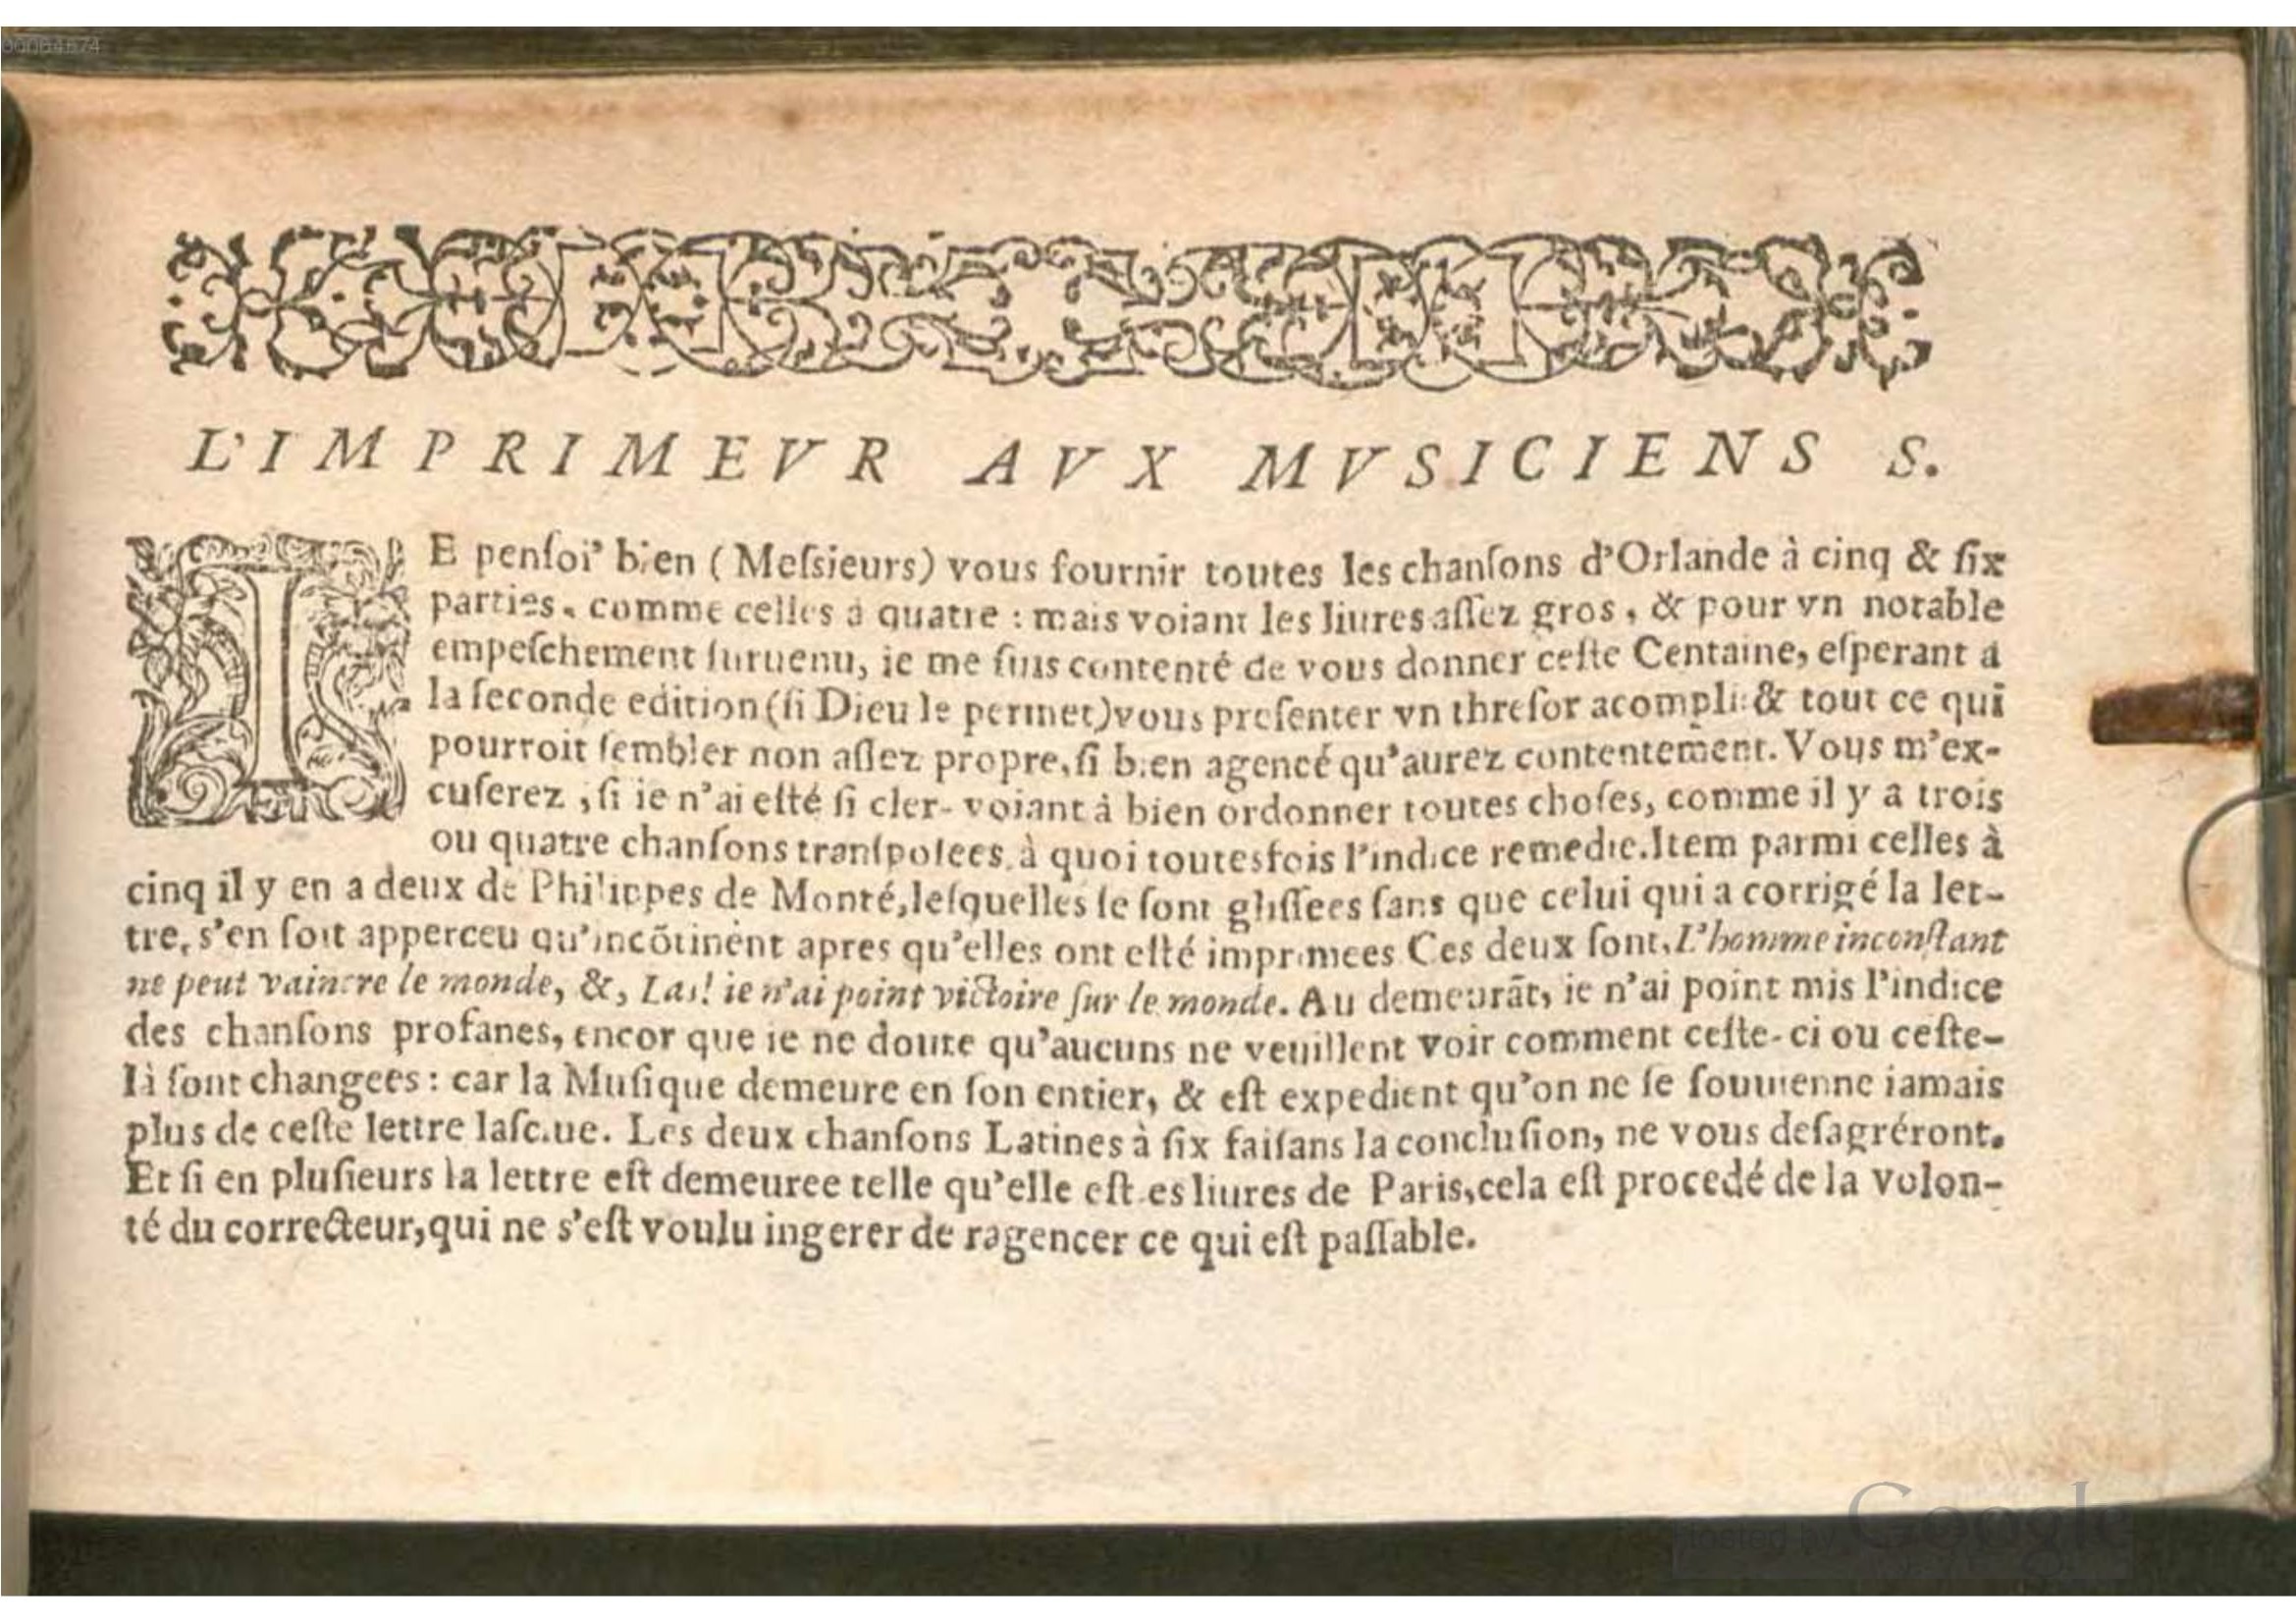 00084674
L'IMPRIMEVR AVX MVSICIENS S.
IE penſoi' bien (Meſsieurs) vous fournir toutes les chanſons d'Orlande à cinq & ſix
parties, comme celles à quatre : mais voiant les liures aſſez gros, & pour vn notable
empeſchement ſuruenu, ie me ſuis contenté de vous donner ceſte Centaine, eſperant a
la ſeconde edition (ſi Dieu le permet) vous preſenter vn threſor acompli: & tout ce qui
pourroit ſembler non aſſez propre, ſi bien agencé qu'aurez contentement. Vous m'ex-
cuſerez, ſi ie n'ai eſté ſi cler-voiant à bien ordonner toutes choſes, comme il y a trois
ou quatre chanſons tranſpoſees, à quoi toutesfois l'indice remedie. Item parmi celles à
cinq il y en a deux de Philippes de Monté, leſquelles ſe ſont gliſſees ſans que celui qui a corrigé la let-
tre, s'en ſoit apperceu qu'incõtinent apres qu'elles ont eſté imprimees Ces deux ſont, L'homme inconſtant
ne peut vaincre le monde, &, Las! ie n'ai point victoire ſur le monde. Au demeurãt, ie n'ai point mis l'indice
des chanſons profanes, encor que ie ne doute qu'aucuns ne veuillent voir comment ceſte-ci ou ceſte-
là ſont changees : car la Muſique demeure en ſon entier, & eſt expedient qu'on ne ſe ſouuienne iamais
plus de ceſte lettre laſciue. Les deux chanſons Latines à ſix faiſans la concluſion, ne vous deſagréront.
Et ſi en pluſieurs la lettre eſt demeuree telle qu'elle eſt es liures de Paris, cela eſt procedé de la volon-
té du correcteur, qui ne s'eſt voulu ingerer de ragencer ce qui eſt paſſable.
Hosted by Google